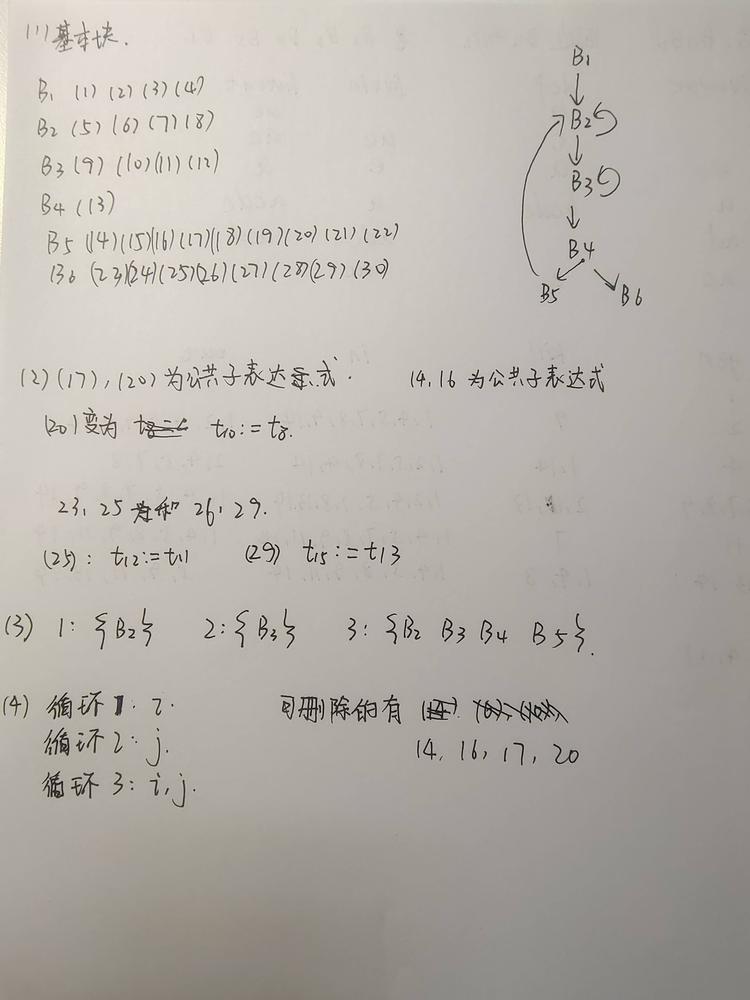 (1) 基本块.
B1 (1) (2) (3) (4)
B2 (5) (6) (7) (8)
B3 (9) (10) (11) (12)
B4 (13)
B5 (14)(15)(16)(17)(18)(19)(20)(21)(22)
B6 (23)(24)(25)(26)(27)(28)(29)(30)
B1
B2
B3
B4
B5 B6
(2) (17), (20) 为公共子表达式. 14, 16 为公共子表达式
(20) 变为 t10:= t8.
23, 25 和 26, 29.
(25): t12:= t11 (29) t15:= t13
(3) 1: {B2} 2: {B3} 3: {B2 B3 B4 B5}.
(4) 循环1: i. 可删除的有
循环2: j. 14, 16, 17, 20
循环3: i, j.